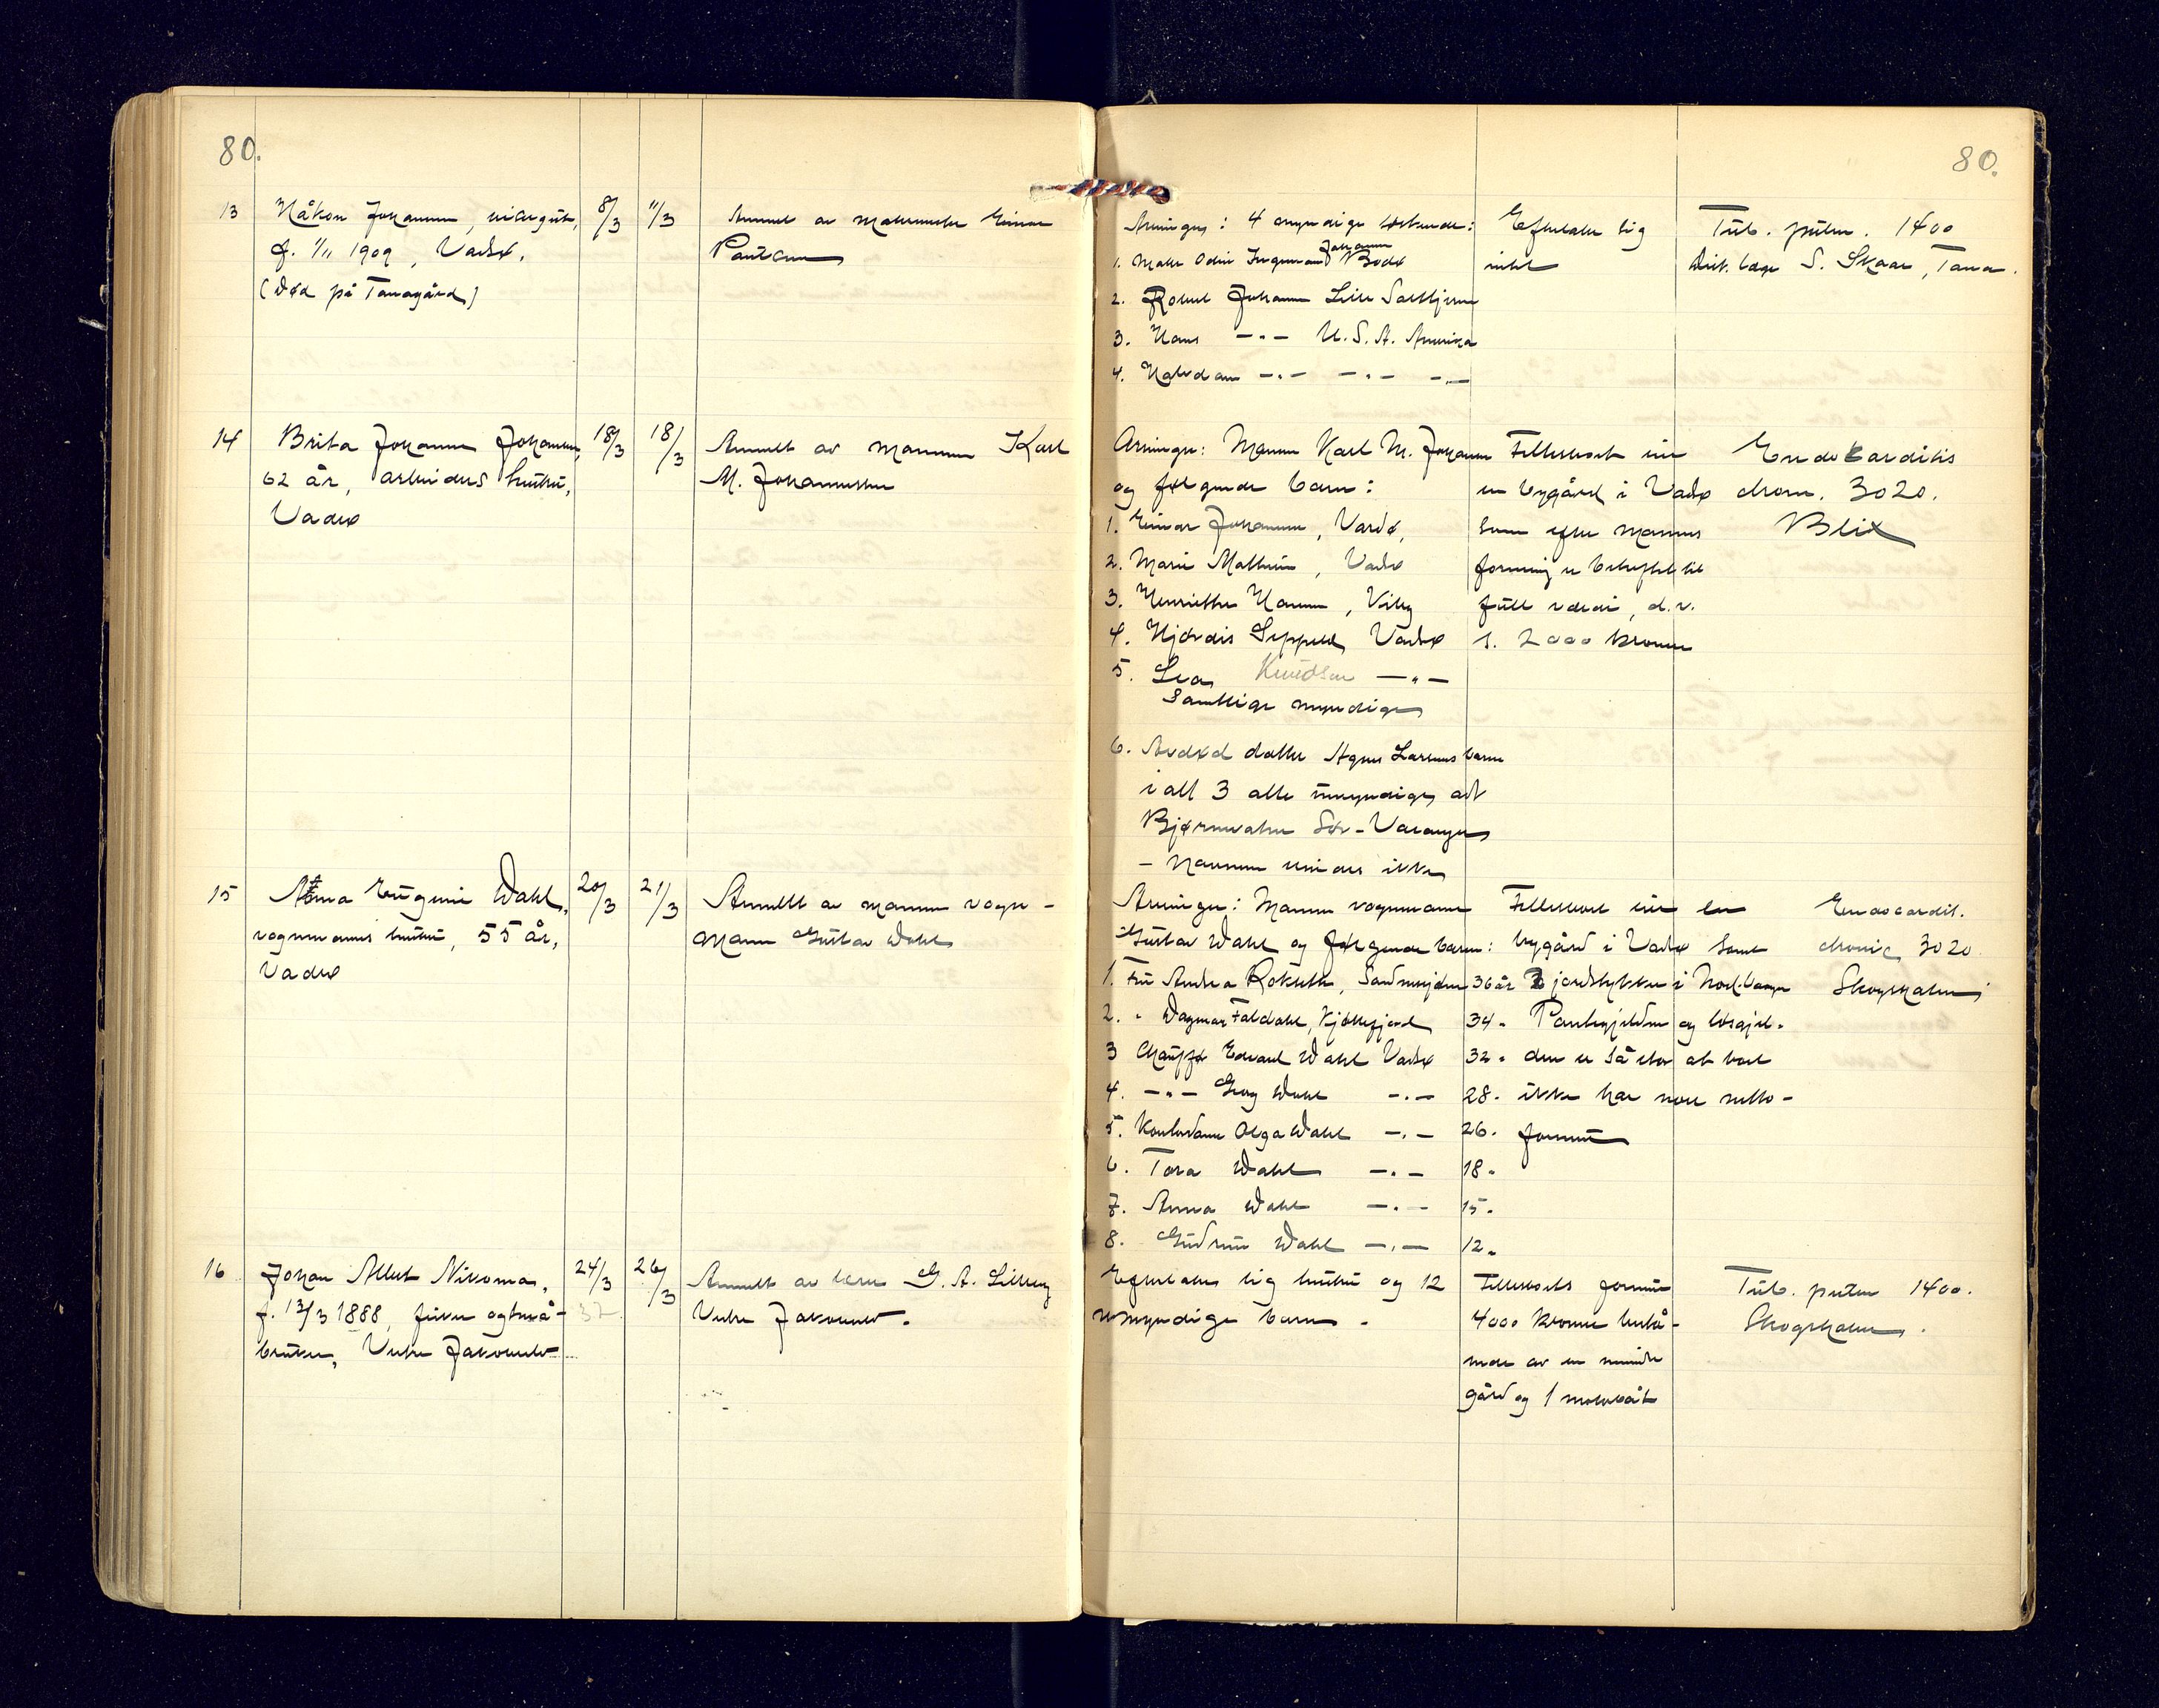 80.
13
Håkon Johansen,
f. 1/11 1909, Vadsø.
(død på Tanagård)
8/3
11/3
Anmeldt av Malermester Einar
Paulsen
14
Brita Johanne Johansen,
62 år, arbeiders hustru,
Vadsø
18/3
18/3
Anmeldt av mannen Karl
M. Johannessen
15
Anna Eugenie Wahl,
vognmanns hustru, 55 år,
Vadsø
20/3
21/3
Anmeldt av mannen vogn-
mann Gustav Wahl
16
Johan Albert Nikonia,
f. 13/3 1888, fisker og små-
bruker, Vestre Jakobselv
24/3
37
26/3
Anmeldt av herr G. A.
Vestre Jakobselv.
80.
Arvinger: 4 myndige søskende:
1. Maler Odin Ingemann Johansen Bodø
2. Robert Johansen Lille
3. Hans -"- U.S.A. Amerika
4. Halvdan -"- -"- -"-
Efterlater sig
intet
Tub. pulm. 1400
Distr. læge S. Skaar, Tana.
Arvinger: Mannen Karl M. Johansen
og følgende barn:
1. Einar Johansen, Vardø,
2. Marie Mathisen, Vadsø
3. Henriette Hansen,
4. Hjørdis Seppelä, Vadsø
5. Lea Knudsen -"-
Samtlige myndige
6. Avdød datter Agnes Larsens barn
i alt 3 alle umyndige, adr
Bjørnevatn Sør-Varanger
- Navnene minnes ikke
Fellesboet eier
en bygård i Vadsø
som efter mannens
formening er beheftet til
full verdi, d.v.
s. 2000 kroner
Endokarditis
chron. 3020.
Blix
Arvinger: Mannen vognmann
Gustav Wahl og følgende barn:
1. Fru Andrea Rokseth, 36 år
2. " Dagmar Faldahl, Kjøllefjord 34 "
3 Chauffør Edvard Wahl Vadsø 32 "
4. -"- Georg Wahl -"- 28 "
5. Kontordame Olga Wahl -"- 26 "
6. Tora Wahl -"- 18 "
7. Anna Wahl -"- 15 "
8. Gudrun Wahl -"- 12 "
Fellesboet eier en
bygård i Vadsø samt
3 jordstykker i
Pantegjelden og løsgjel-
den er så stor at boet
ikke har noe netto-
formue
Endocardit.
chronic 3020
Skogsholm
Efterlater sig hustru og 12
umyndige barn.
Fellesboets formue
4000 kroner bestå-
ende av en mindre
gård og 1 motorbåt
Tub. pulm 1400.
Skogsholm.